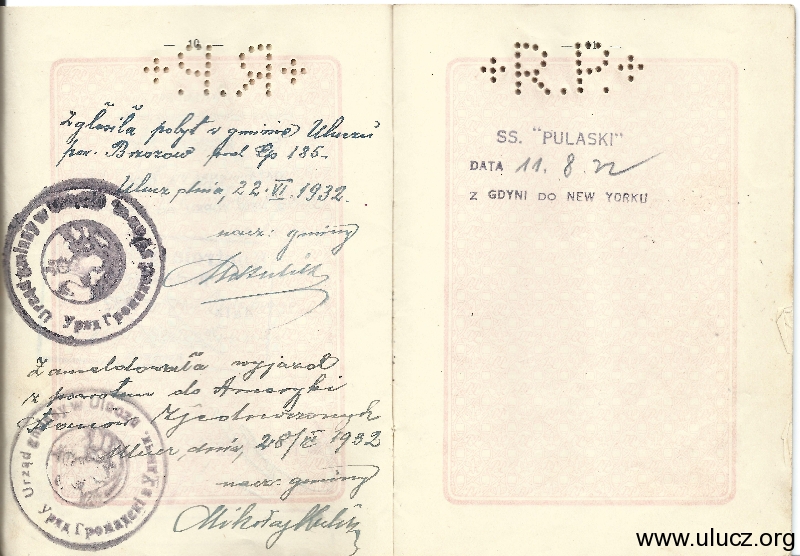 — 10 —
+ R.P. +
Zgłosiła pobyt w gminie Uluczu
pow. Brzozów pod Lp 135.
Ulucz dnia, 22.VI. 1932.
nacz: gminy
Urząd gminy w
Уряд Громадс
Zameldowała wyjazd
z powrotem do Ameryki
Stanów Zjednoczonych
Ulucz, dnia, 28/ 1932
nacz: gminy
Mikołaj
Urząd gminy w Uluczu
Уряд Громадскі в Улючи
+ R.P. +
SS. "PULASKI"
DATA 11.8.
Z GDYNI DO NEW YORKU
www.ulucz.org